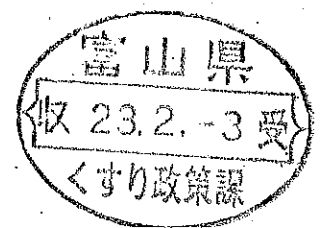 富山県
収 23.2.-3 受
くすり政策課